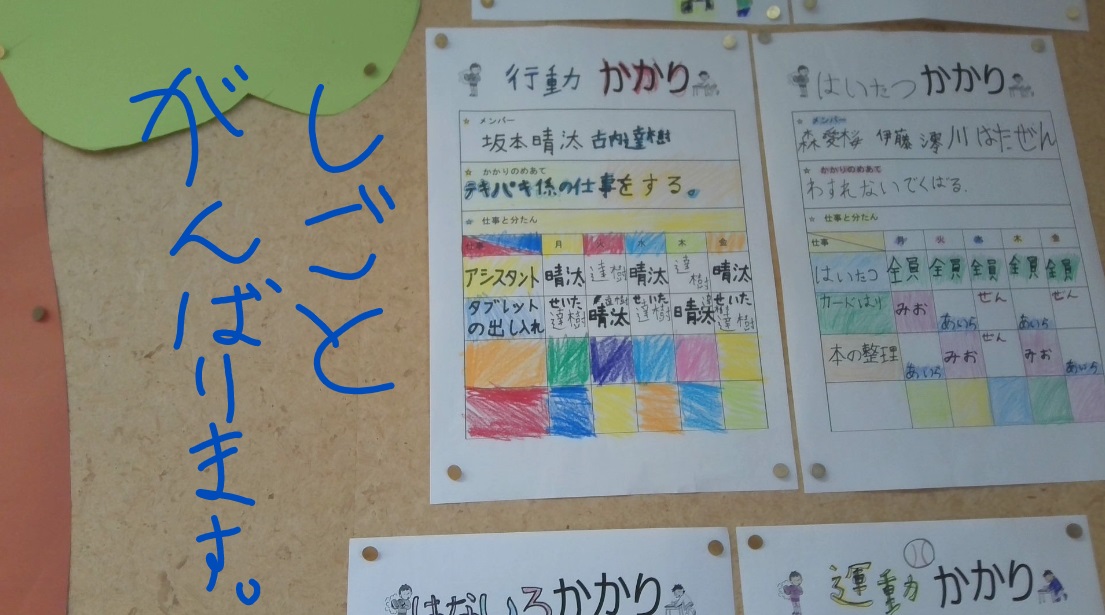 しごと
がんばります。
行動 かかり
☆ メンバー
坂本晴汰 古内達樹
☆ かかりのめあて
テキパキ係の仕事をする。
☆ 仕事と分たん
仕事 月 火 水 木 金
アシスタント 晴汰 達樹 晴汰 達樹 晴汰
タブレットの出し入れ せいた 達樹 達樹 晴汰 せいた 達樹 達樹 晴汰 せいた 達樹
はいたつ かかり
☆ メンバー
森愛桜 伊藤 澪 川はたぜん
☆ かかりのめあて
わすれないでくばる.
☆ 仕事と分たん
仕事 月 火 水 木 金
はいたつ 全員 全員 全員 全員 全員
カードはり みお あいら ぜん あいら ぜん
本の整理 あいら みお ぜん みお あいら
はないろかかり
運動 かかり